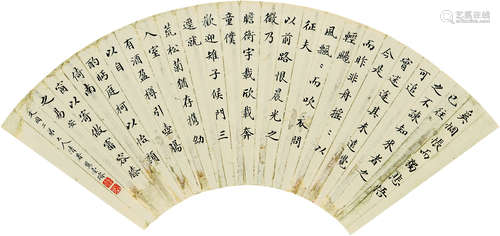 奚惆悵而獨悲悟
已往
之不諫知來者之
可追
實迷途其未遠覺
今是
而昨非舟搖搖以
輕颺
風飄飄而吹衣問
征夫
以前路恨晨光之
微乃
瞻衡宇載欣載奔
童僕
歡迎稚子候門三
逕就
荒松菊猶存攜幼
入室
有酒盈樽引壺觴
以自
酌眄庭柯以怡顏
倚南
窗以寄傲審容膝
之易安